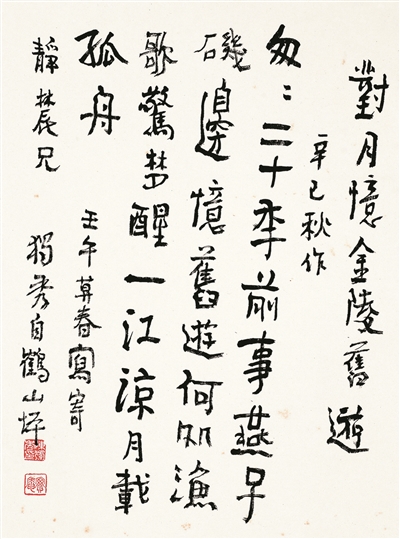 對月憶金陵舊遊
辛巳秋作
匆〻二十秊前事燕子
磯邊憶舊遊何処漁
歌驚夢醒一江涼月載
孤舟
壬午暮春寫寄
靜農兄
獨秀自鶴山坪